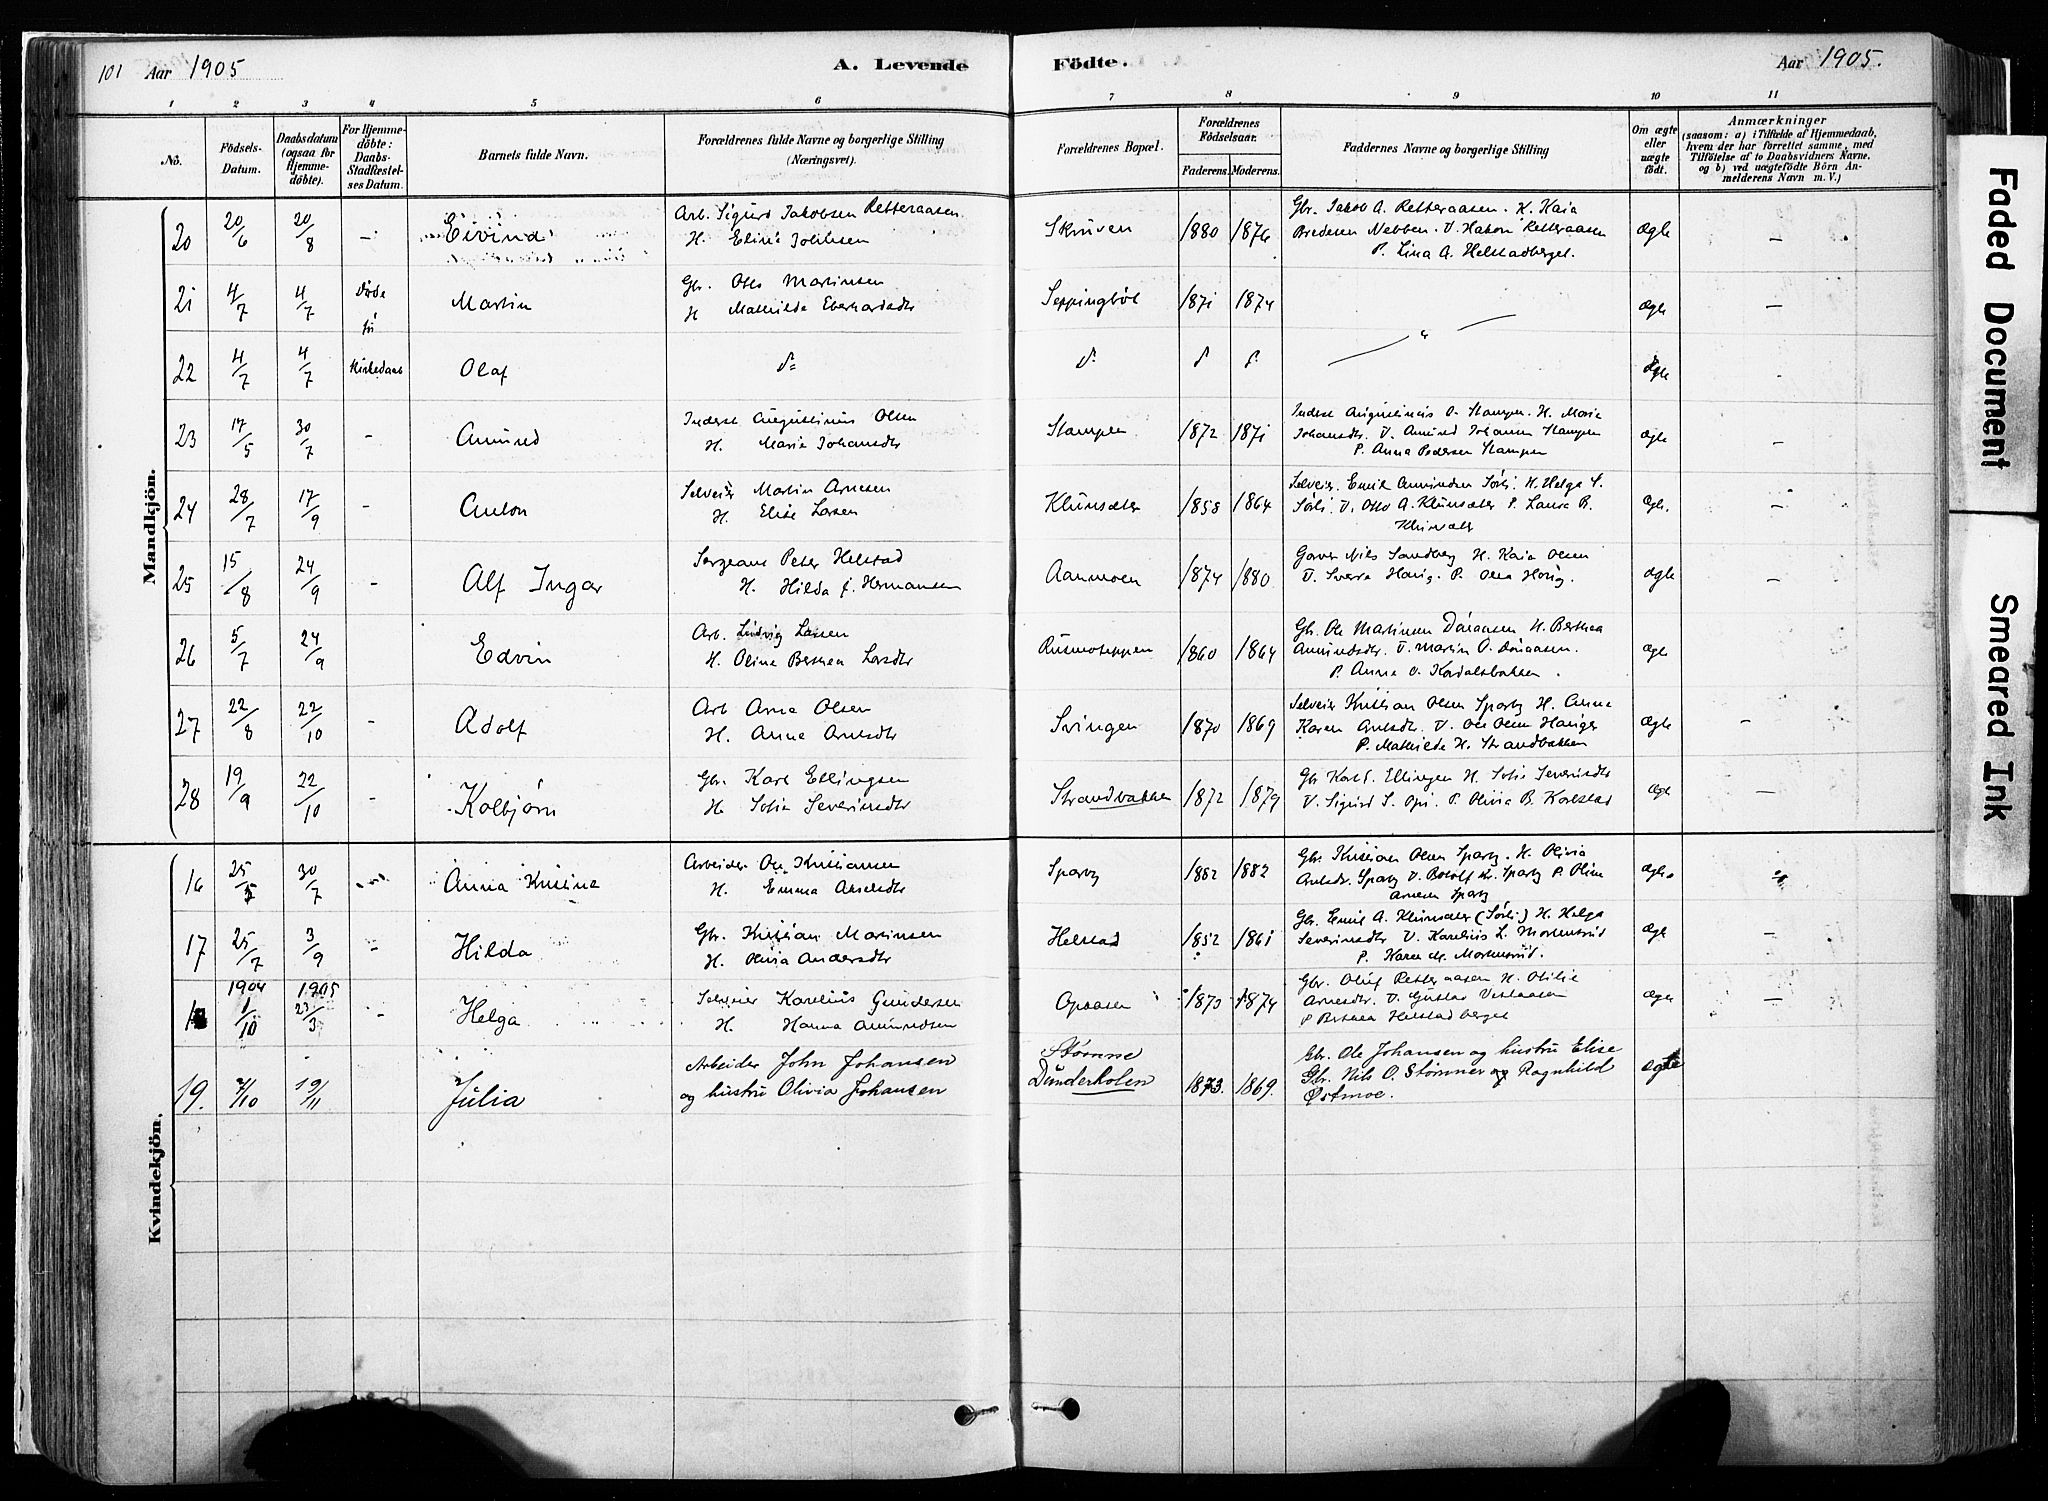 101 Aar 1905 A. Levende Födte. Aar 1905.
1 2 3 4 5 6 7 8 9 10 11
Nö. Födsels-Datum. Daabsdatum (ogsaa for Hjemmedöbte). For Hjemmedöbte: Daabs-Stadfæstelses Datum. Barnets fulde Navn. Forældrenes fulde Navne og borgerlige Stilling (Næringsvei). Forældrenes Bopæl. Forældrenes Födselsaar. Faderens. Moderens. Faddernes Navne og borgerlige Stilling Om ægte eller uægte födt. Anmærkninger (saasom: a) i Tilfælde af Hjemmedaab, hvem der har forrettet samme, med Tilföielse af to Daabsvidners Navne, og b) ved uægtefödte Börn Anmelderens Navn m. V.)
Mandkjön.
20 20/6 20/8 - Eivind Arb. Sigurd Jakobsen Retteraasen
H. Eline Skruven 1880 1876 Gbr. Jakob A. Retteraasen. H. Kaia
Bredesen Nebben. U. Hakon Retteraasen
P. Lina A. Helstadberget. ægte -
21 4/7 4/7 Døde før Martin Gbr. Otto Martinsen
H Mathilde Eberhardsdtr Seppingböl 1871 1874 ægte -
22 4/7 4/7 Kirkedaab Olaf d= d= d d ægte -
23 17/5 30/7 - Amund Inderst Augustinus Olsen
H. Marie Johansdtr Stampen 1872 1871 Inderst Augustinus O. Stampen. H. Marie
Johansdtr. U. Amund Johansen Stampen
P. Anna Pedersen Stampen ægte -
24 28/7 17/9 - Anton Selveier Martin Arnesen
H. Elise Larsen Klunsæter 1858 1864 Selveier. Emil Amundsen Sörli. H. Helga S.
Sörli. U. Otto A. Klunsæter P. Laura B.
Klunsæter ægte. -
25 15/8 24/9 - Alf Ingar Sergeant Peter Helstad
H. Hilda f. Hermansen Aanmoen 1874 1880 Garver Nils Sandberg H. Kaia Olsen
U. Sverre Honig. P. Olea Honig. ægte -
26 5/7 24/9 Edvin Arb. Ludvig Larsen
H. Oline Berthea Larsdtr 1860 1864 Gbr. Ole Martinsen H. Berthea
Amundsdtr. U. Martin O.
P. Anne O. ægte
27 22/8 22/10 - Adolf Arb Arne Olsen
H. Anne Arnesdtr Svingen 1870 1869 Selveier Kristian Olsen Sparby H. Anne
Karen Arnesdtr. U. Ole Olsen
P. Mathilde H. Strandbakken ægte -
28 19/9 22/10 - Kolbjörn Gbr. Karl Ellingsen
H. Sofie Severinsdtr Strandbakken 1872 1879 Gbr Karl S. Ellingsen H. Sofie Severinsdtr
U. Sigurd S. Opi. P. Olivia B. Karlstad ægte -
Kvindekjön.
16 25/5 30/7 Anna Kristine Arbeider Ole Kristiansen
H. Emma Akselsdtr Sparby 1882 1882 Gbr. Kristian Olsen Sparby. H. Olivia
Arnesdtr. Sparby U. Botolf Kr. Sparby P. Oline
Arnesen Sparby ægte.
17 25/7 3/9 - Hilda Gbr. Kristian Martinsen
H. Olivia Andersdtr Helstad 1852 1861 Gbr. Emil A. Klunsæter (Sörli) H. Helga
Severinsdtr U. Karelius L. Mortensrud
P. Karen M. Mortensrud. ægte -
1904 1/10 1905 23/3 - Helga Selveier Karelius Gundersen
H. Hanna Amundsen Opaasen 1873 1874 Gbr. Oluf Retteraasen H. Otilie
Arnesdtr. U. Gustav
P Berthea Helstadberget ægte -
19. 4/10 19/11 Julia Arbeider John Johansen
og hustru Olivia Johansen Stømne
Dunderholen 1873. 1869. Gbr. Ole Johansen og hustru Elise
Gbr. Nils O. Stømner og Ragnhild
Østmoe. ægte
Faded Document
Smeared Ink